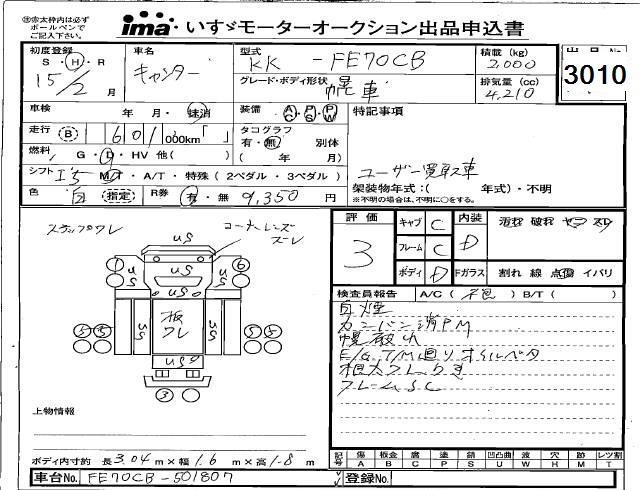 ㊟太枠内は必ずボールペンでご記入下さい。
ima いすゞモーターオークション出品申込書
初度登録 S・H・R 15/2月
車名 キャンター
型式 KK - FE70CB
積載 (kg) 2,000
出品No. 3010
グレード・ボディ形状 幌車
排気量 (cc) 4,210
車検 年 月・抹消
装備 AC・PS・PW
特記事項
走行 B 601,000km「 」
タコグラフ 有・無 別体 ( 年 月)
燃料 G・D・HV 他( )
ユーザー買取車
シフト I5 MT・A/T・特殊 (2ペダル・3ペダル)
架装物年式:( 年式)・不明
※不明の場合は、不明に○をする。
色 白 指定 R券 有・無 9,350円
評価 3
キャブ C
内装 D
フレーム C
ボディ D
Fガラス 割れ 線 点傷 イバリ
ステップワレ
コーナーレンズズレ
US
1
6
板ワレ
5
5
5
5
3
検査員報告 A/C( 不包 ) B/T( )
白煙
カンバン消PM
幌破れ
E/G T/M廻りオイルベタ
根太フレサキ
フレームSC
上物情報
ボディ内寸約 長3.04m×幅1.6m×高1.8m
記号 傷A 板金B 腐C 塗P 錆S 凹凸曲U 波W 穴H 跡M レンズ割T
車台No. FE70CB-501807
登録No.